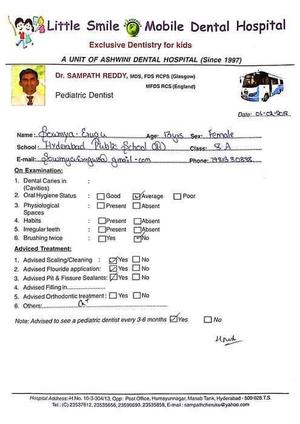 Little Smile Mobile Dental Hospital
Exclusive Dentistry for kids
A UNIT OF ASHWINI DENTAL HOSPITAL (Since 1997)
Dr. SAMPATH REDDY, MDS, FDS RCPS (Glasgow)
MFDS RCS (England)
Pediatric Dentist
Date:
Name: Sowmya Age: 13yrs Sex: Female
School: Hyderabad Public School Class: 8 A
E-mail: gmail.com Phone:
On Examination:
1. Dental Caries in :
(Cavities)
2. Oral Hygiene Status : Good Average Poor
3. Physiological : Present Absent
Spaces
4. Habits : Present Absent
5. Irregular teeth : Present Absent
6. Brushing twice : Yes No
Adviced Treatment:
1. Advised Scaling/Cleaning : Yes No
2. Advised Flouride application: Yes No
3. Advised Pit & Fissure Sealants: Yes No
4. Advised Filling in
5. Advised Orthodontic treatment: Yes No
6. Others:
Note: Advised to see a pediatric dentist every 3-6 months Yes No
Hospital Address: H.No. 10-3-304/13, Opp. Post Office, Humayunnagar, Masab Tank, Hyderabad - 500 028.T.S.
Tel.: (C) 23537612, 23535656, 23596693, 23535858, E-mail : sampathcheruku@yahoo.com